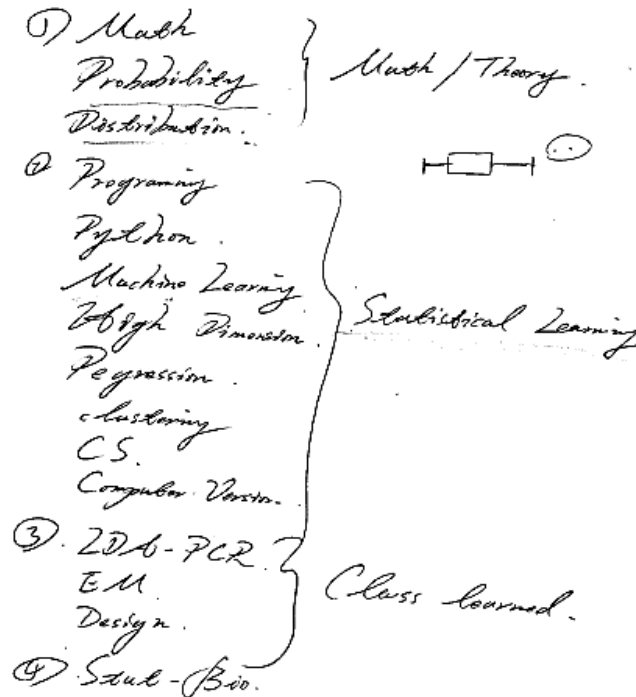 ① Math
Probability
Distribution.
} Math / Theory.
② Programing
Python.
Machine Learning
High Dimension.
Regression.
clustering
CS.
Computer Version.
} Statistical Learning
③. LDA - PCR.
EM.
Design.
} Class learned.
④ Stat - Bio.